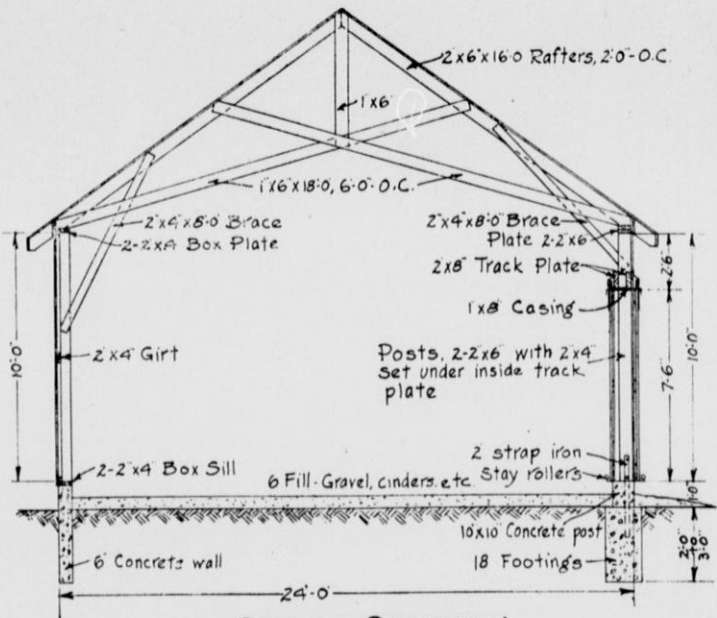 2"x6"x16'-0 Rafters, 2'-0"-O.C.
1"x6"
1"x6"x18'-0, 6'-0"-O.C.
2"x4"x8'-0" Brace
2-2"x4" Box Plate
2"x4"x8'-0" Brace
Plate 2-2"x6"
2"x8" Track Plate
1"x8" Casing
2'-6"
10'-0"
2"x4" Girt
Posts, 2-2"x6" with 2"x4"
set under inside track
plate
7'-6"
10'-0"
2-2"x4" Box Sill
2" strap iron
Stay rollers
6" Fill-Gravel, cinders. etc.
1'-0"
10"x10" Concrete post
6" Concrete wall
18" Footings
2'-0"
3'-0"
24'-0"